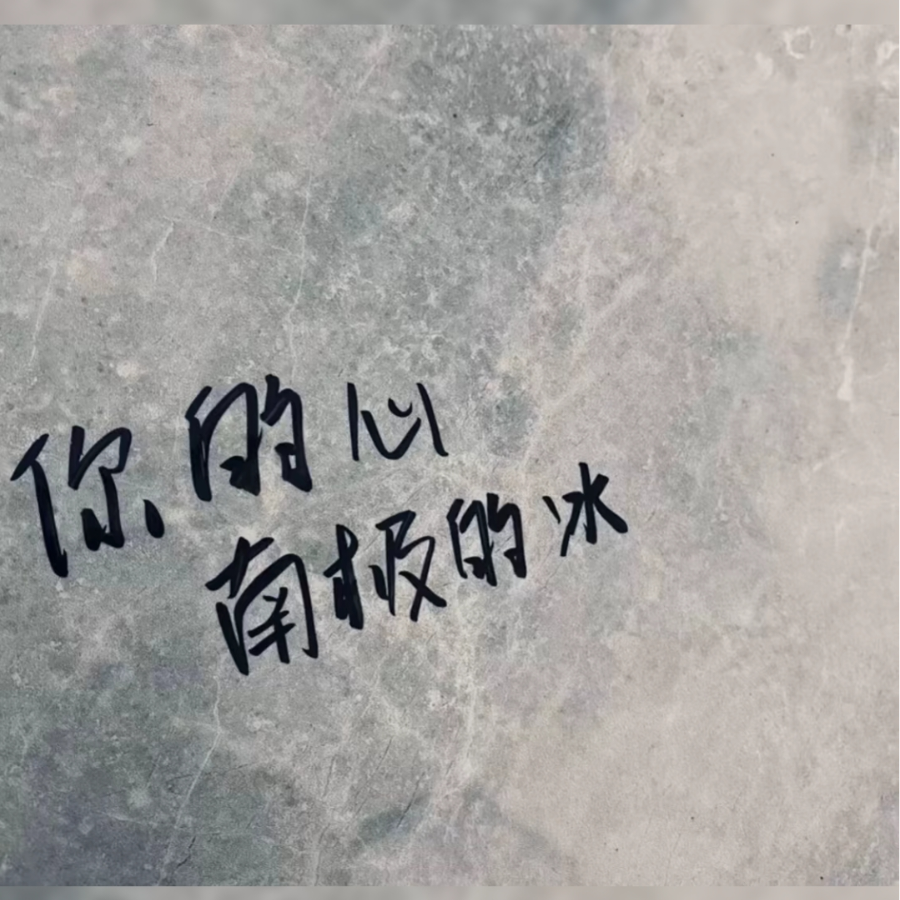 你的心
南极的冰